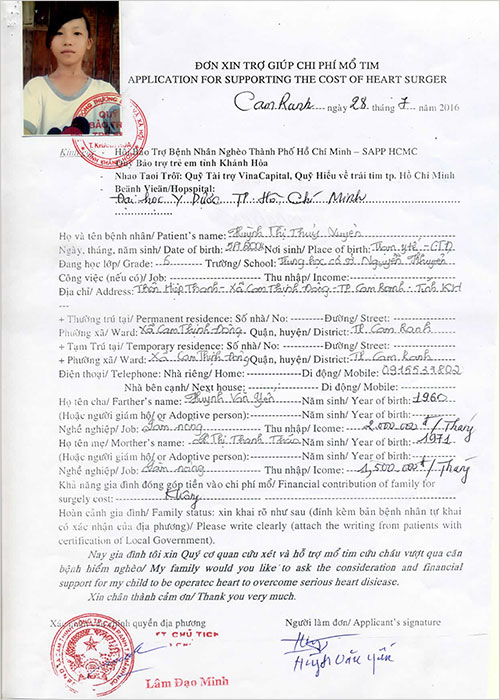 ĐƠN XIN TRỢ GIÚP CHI PHÍ MỔ TIM
APPLICATION FOR SUPPORTING THE COST OF HEART SURGER
Cam Ranh ngày 28 tháng 7 năm 2016
Hội Bảo Trợ Bệnh Nhân Nghèo Thành Phố Hồ Chí Minh – SAPP HCMC
Quỹ Bảo trợ trẻ em tỉnh Khánh Hòa
- Nhao Taoi Trôi: Quỹ Tài trợ VinaCapital, Quỹ Hiểu về trái tim tp. Hồ Chí Minh
- Beänh Vieän/Hopspital:
Đại học Y Dược TP Hồ Chí Minh
Họ và tên bệnh nhân/ Patient's name: Huỳnh Thị Thuý Xuyên
Ngày, tháng, năm sinh/ Date of birth: Nơi sinh/ Place of birth: Trạm y tế - CTĐ
Đang học lớp/ Grade: 6 Trường/ School: Trung học cơ sở Nguyễn Khuyến
Công việc (nếu có)/ Job: Thu nhập/ Income:
Địa chỉ/ Address: Thôn Hiệp Thanh - Xã Cam Thịnh Đông - TP Cam Ranh - Tỉnh KH
+ Thường trú tại/ Permanent residence: Số nhà/ No: Đường/ Street:
Phường xã/ Ward: Xã Cam Thịnh Đông. Quận, huyện/ District: TP. Cam Ranh
+ Tạm Trú tại/ Temporary residence: Số nhà/ No: Đường/ Street:
+ Phường xã/ Ward: Xã. Cam Thịnh Đông Quận, huyện/ District: TP. Cam Ranh
Điện thoại/ Telephone: Nhà riêng/ Home: Di động/ Mobile: 0915531802
Nhà bên cạnh/ Next house: Di động/ Mobile:
Họ tên cha/ Farther's name: Huỳnh Văn Yến Năm sinh/ Year of birth: 1960
(Hoặc người giám hộ/ or Adoptive person):
Nghề nghiệp/ Job: Làm nông Thu nhập/ Icome: 2,000.000 đ/ Tháng
Họ tên mẹ/ Morther's name: Lê Thị Thanh Năm sinh/ Year of birth: 1971
(Hoặc người giám hộ/ or Adoptive person):
Nghề nghiệp/ Job: Làm nông Thu nhập/ Icome: 1,500.000 đ/ Tháng
Khả năng gia đình đóng góp tiền vào chi phí mổ/ Financial contribution of family for
surgely cost: Không
Hoàn cảnh gia đình/ Family status: xin khai rõ như sau (đính kèm bản bệnh nhân tự khai
có xác nhận của địa phương)/ Please write clearly (attach the writing from patients with
certification of Local Government).
Nay gia đình tôi xin Quý cơ quan cứu xét và hỗ trợ mổ tim cứu cháu vượt qua căn
bệnh hiểm nghèo/ My family would you like to ask the consideration and financial
support for my child to be operatec heart to overcome serious heart disiease.
Xin chân thành cảm ơn/ Thank you very much.
chính quyền địa phương Người làm đơn/ Applicant's signature
CHỦ TỊCH
Huỳnh Văn Yến
Lâm Đạo Minh